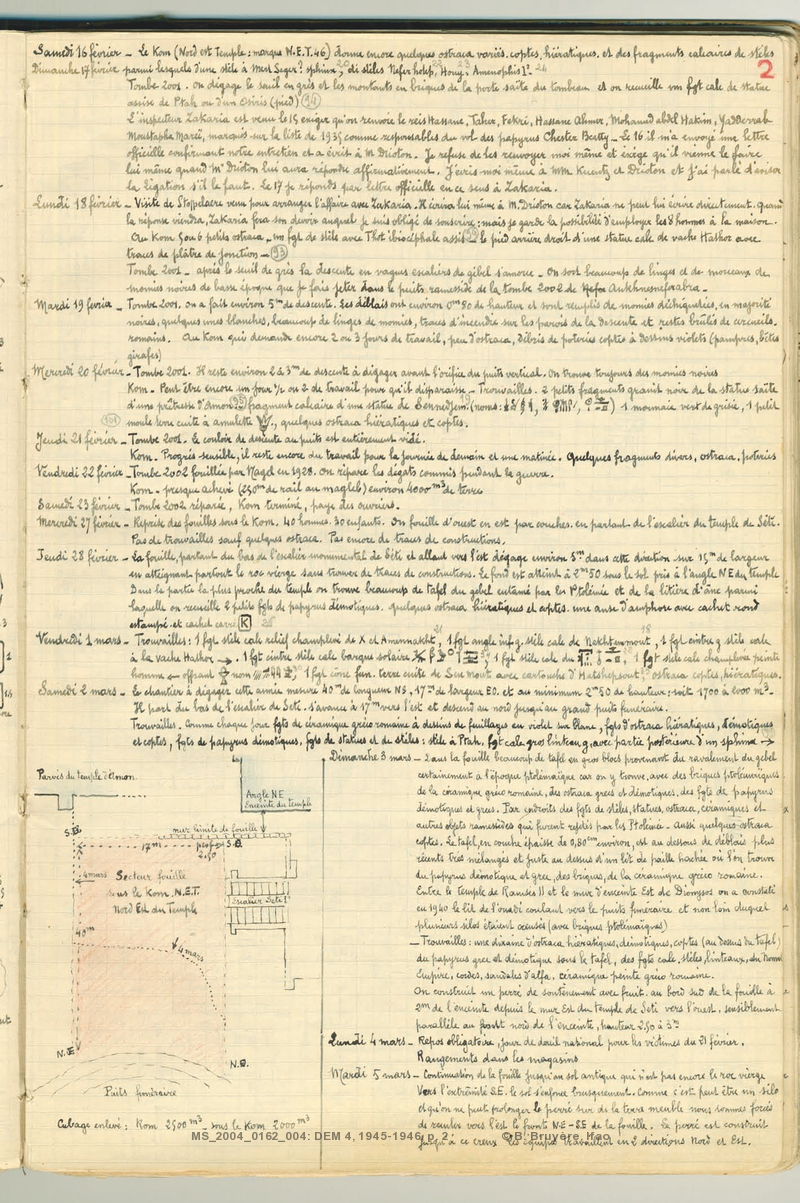 2
Samedi 16 février _ Le Kom (Nord est Temple : marque N.E.T. 46) donne encore quelques ostraca variés, coptes, hiératiques, et des fragments calcaires de stèles
Dimanche 17 février parmi lesquels d'une stèle à Mert Seger ? sphinx, di stèles Nefer hotep, Houy, Amenophis 1er
Tombe 2001. On dégage le seuil en grès et les montants en briques de la porte saïte du tombeau et on recueille un fgt calc de statue
assise de Ptah ou d'un Osiris (pied) (94)
L'inspecteur Zakaria est venu le 15 exiger qu'on renvoie le reis Hassane, Taher, Fekri, Hassane Ahmer, Mohamed abdel Hakim,
Moustapha Mareï, marqués sur la liste de 1935 comme responsables du vol des papyrus Chester Beatty _ Le 16 il m'a envoyé une lettre
officielle confirmant notre entretien et a écrit à M. Drioton. Je refuse de les renvoyer moi même et exige qu'il vienne le faire
lui même quand Mr Drioton lui aura répondu affirmativement. J'écris moi même à MM Kuentz et Drioton et j'ai parlé d'aviser
la légation s'il le faut. Le 17 je réponds par lettre officielle en ce sens à Zakaria.
Lundi 18 février _ Visite de Stoppelaere venu pour arranger l'affaire avec Zakaria. Il écrira lui même à M. Drioton car Zakaria ne peut lui écrire directement. Quand
la réponse viendra, Zakaria fera son devoir auquel je suis obligé de souscrire ; mais je garde la possibilité d'employer les 8 hommes à la maison.
Au Kom 5 ou 6 petits ostraca _ un fgt de stèle avec Thot ibiocéphale assis _ le pied arrière droit d'une statue calc de vache Hathor avec
traces de plâtre de jonction _ (93)
Tombe 2001 _ après le seuil de grès la descente en vagues escaliers de gebel s'amorce _ On sort beaucoup de linges et de morceaux de
momies noires de basse époque que je fais jeter dans le puits ramesside de la tombe 2002 de Ankhnesneferabra _
Mardi 19 février _ Tombe 2001. On a fait environ 5m de descente. Les déblais ont environ 0m90 de hauteur et sont remplis de momies déchiquetées, en majorité
noires, quelques unes blanches, beaucoup de linges de momies, traces d'incendie sur les parois de la descente et restes brûlés de cercueils.
romains. Au Kom qui demande encore 2 ou 3 jours de travail, peu d'ostraca, débris de poteries coptes à dessins violets (pampres, bêtes
girafes)
Mercredi 20 février _ Tombe 2001. Il reste environ 2 à 3m de descente à dégager avant l'orifice du puits vertical. On trouve toujours des momies noires
Kom _ Peut être encore un jour 1/2 ou 2 de travail pour qu'il disparaisse _ Trouvailles. 2 petits fragments granit noir de la statue saïte
d'une prêtresse d'Amon fragment calcaire d'une statue de Sennedjem (noms : ) 1 monnaie vert de grisée, 1 petit
moule terre cuite à amulette , quelques ostraca hiératiques et coptes.
Jeudi 21 février _ Tombe 2001. Le couloir de descente au puits est entièrement vidé.
Kom. Progrès sensible, il reste encore du travail pour la journée de demain et une matinée. Quelques fragments divers, ostraca, poteries
Vendredi 22 février _ Tombe 2002 fouillée par Nagel en 1928. On répare les dégâts commis pendant la guerre.
Kom _ presque achevé (250m de rail au magleb) environ 4000 m3 de terre
Samedi 23 février _ Tombe 2002 réparée, Kom terminé, paye des ouvriers.
Mercredi 27 février _ Reprise des fouilles sous le Kom. 40 hommes. 30 enfants. On fouille d'ouest en est par couches. en partant de l'escalier du temple de Séti.
Pas de trouvailles sauf quelques ostraca. Pas encore de traces de constructions.
Jeudi 28 février _ La fouille, partant du bas de l'escalier monumental de Séti et allant vers l'est dégage environ 5m dans cette direction sur 15m de largeur
en atteignant partout le roc vierge sans trouver de traces de constructions. Le fond est atteint à 2m50 sous le sol pris à l'angle NE du temple
Dans la partie la plus proche du temple on trouve beaucoup de tafel du gebel entamé par les Ptolémée et de la litière d'âne parmi
laquelle on recueille 2 petits fgts de papyrus démotiques. quelques ostraca hiératiques et coptes. une anse d'amphore avec cachet rond
estampé et cachet carré K
Vendredi 1 mars _ Trouvailles : 1 fgt stèle calc relief champlevé de X et Amennakht, 1 fgt angle inf. g. stèle calc de Nekhtenmout, 1 fgt cintre g stèle calc
à la vache Hathor → . 1 fgt cintre stèle calc barque solaire , 1 fgt stèle calc du , 1 fgt stèle calc champlevée peinte
homme ← offrant nom 1 fgt cône fun. terre cuite de Sen mout avec cartouche d'Hatshepsout, ostraca coptes, hiératiques.
Samedi 2 mars _ le chantier à dégager cette année mesure 40m de longueur NS, 17m de largeur EO. et au minimum 2m50 de hauteur : soit 1700 à 2000 m3 _
Il part du bas de l'escalier de Séti. s'avance à 17m vers l'est et descend au nord jusqu'au grand puits funéraire.
Trouvailles. Comme chaque jour fgts de céramique gréco romaine à dessins de feuillages en violet sur blanc, fgts d'ostraca hiératiques, démotiques
et coptes, fgts de papyrus démotiques, fgts de statues et de stèles : stèle à Ptah, fgt calc gros linteau g. avec partie postérieure d'un sphinx →
Dimanche 3 mars _ Dans la fouille beaucoup de tafel en gros blocs provenant du ravalement du gebel
certainement à l'époque ptolémaïque car on y trouve, avec des briques ptolémaïques
de la céramique gréco romaine, des ostraca grecs et démotiques, des fgts de papyrus
démotiques et grecs. Par endroits des fgts de stèles, statues, ostraca, céramiques et
autres objets ramessides qui furent rejetés par les Ptolémée _ aussi quelques ostraca
coptes. Le tafel, en couche épaisse de 0,80cm environ, est au dessous de déblais plus
récents très mélangés et juste au dessus d'un lit de paille hachée où l'on trouve
du papyrus démotique et grec, des briques, de la céramique gréco romaine.
Entre le temple de Ramsès II et le mur d'enceinte Est de Dionysos on a constaté
en 1940 le lit de l'ouadi coulant vers le puits funéraire et non loin duquel
plusieurs silos étaient creusés (avec briques ptolémaïques)
_ Trouvailles : une dizaine d'ostraca hiératiques, démotiques, coptes (au dessus du tafel)
du papyrus grec et démotique sous le tafel, des fgts calc. stèles, linteaux, du Nouvel
Empire, cordes, sandales d'alfa. céramique peinte gréco romaine.
On construit un perré de soutènement avec fruit. au bord sud de la fouille à
2m de l'enceinte depuis le mur Est du temple de Séti vers l'ouest, sensiblement
parallèle au front nord de l'enceinte, hauteur 2.50 à 3m
Lundi 4 mars _ Repos obligatoire, jour de deuil national pour les victimes du 21 février.
Rangements dans les magasins
Mardi 5 mars _ Continuation de la fouille jusqu'au sol antique qui n'est pas encore le roc vierge
Vers l'extrémité S.E. le sol s'enfonce brusquement. Comme c'est peut être un silo
et qu'on ne peut prolonger le perré sur de la terre meuble nous sommes forcés
de reculer vers l'est le front N.E - S.E de la fouille. Le perré est construit
jusqu'à ce creux. Les équipes travaillent en 2 directions Nord et Est.
Parvis du temple d'Amon.
Angle N.E
Enceinte du temple
mur limite de fouille
S.E.
17m
prof
2.50
S.O.
4 mars
Secteur fouille
sous le Kom. N.E.T.
Nord Est du Temple
Escalier Séti 1er
40m
4 mars
N.E
N.O.
Puits funéraire
Cubage enlevé : Kom 2500 m3 _ sous le Kom 2000 m3
MS_2004_0162_004: DEM 4, 1945-1946, p. 2. © B. Bruyère, Ifao